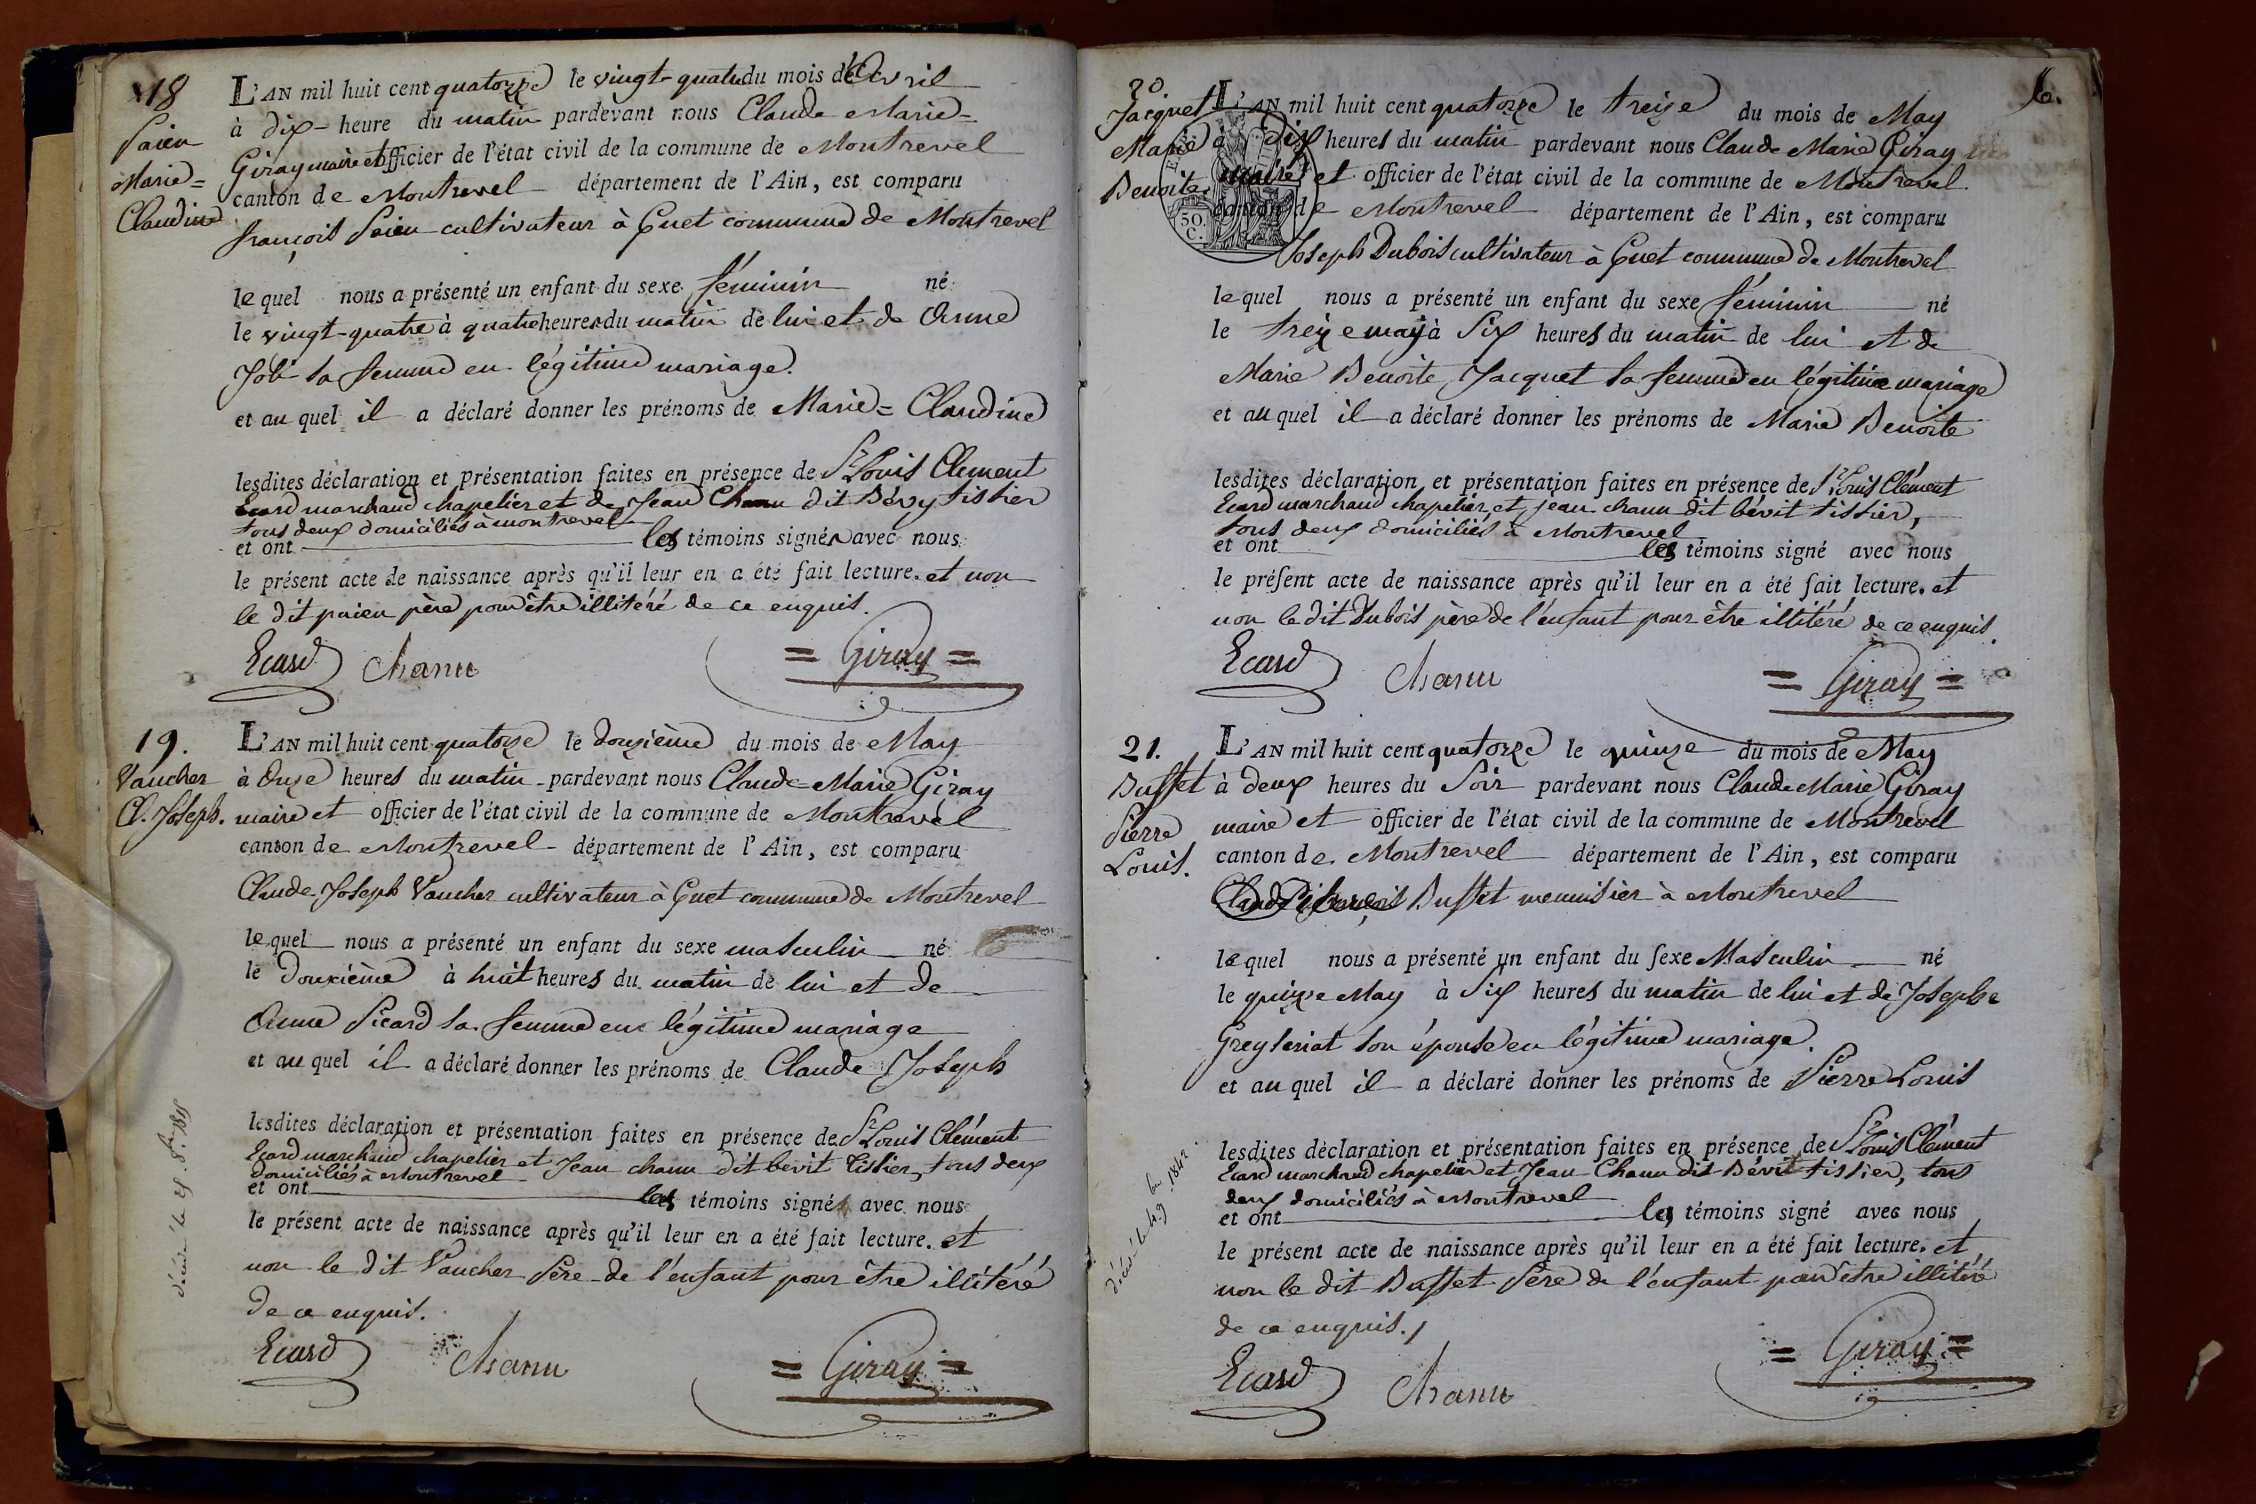 18
Paien
Marie=
Claudine
L'AN mil huit cent quatorze le vingt-quatre du mois d'Avril
à dix- heure du matin pardevant nous Claude Marie=
Giray maire et officier de l'état civil de la commune de Montrevel
canton de Montrevel département de l'Ain, est comparu
françois Paien cultivateur à Cuet commune de Montrevel
lequel nous a présenté un enfant du sexe féminin né
le vingt-quatre à quatre heures du matin de lui et de Anne
Joli sa femme en légitime mariage.
et au quel il a déclaré donner les prénoms de Marie=Claudine
lesdites déclaration et présentation faites en présence de Sr Louis Clement
Ecard marchand chapelier et de Jean Chanu dit Bévy tissier
tous deux domiciliés à montrevel
et ont les témoins signé avec nous
le présent acte de naissance après qu'il leur en a été fait lecture. et non
le dit paien père pour être illitéré de ce enquis.
Ecard Chanu = Giray =
19.
Vaucher
Cl. Joseph.
L'AN mil huit cent quatorze le douzième du mois de May
à Onze heures du matin pardevant nous Claude Marie Giray
maire et officier de l'état civil de la commune de Montrevel
canton de Montrevel département de l'Ain, est comparu
Claude Joseph Vaucher cultivateur à Cuet commune de Montrevel
lequel nous a présenté un enfant du sexe masculin né
le douzième à huit heures du matin de lui et de
Anne Picard sa femme en légitime mariage
et au quel il a déclaré donner les prénoms de Claude Joseph
lesdites déclaration et présentation faites en présence de Sr Louis Clément
Ecard marchand chapelier et Jean chanu dit bévit tissier, tous deux
domiciliés à Montrevel
et ont les témoins signé avec nous
le présent acte de naissance après qu'il leur en a été fait lecture. et
non le dit Vaucher Père de l'enfant pour être illitéré
de ce enquis.
Ecard Chanu = Giray =
décédé le 25 8bre 1815
6.
20
Jacquet
Marie
Benoite.
50
C.
L'AN mil huit cent quatorze le treize du mois de May
à dix heures du matin pardevant nous Claude Marie Giray
maire et officier de l'état civil de la commune de Montrevel
canton de Montrevel département de l'Ain, est comparu
Joseph Dubois cultivateur à Cuet commune de Montrevel
lequel nous a présenté un enfant du sexe féminin né
le treize may à Six heures du matin de lui et de
Marie Benoite Jacquet sa femme en légitime mariage
et au quel il a déclaré donner les prénoms de Marie Benoite
lesdites déclaration et présentation faites en présence de Sr Louis Clément
Ecard marchand chapelier, et jean chanu dit bévit tissier,
tous deux domiciliés à Montrevel
et ont les témoins signé avec nous
le présent acte de naissance après qu'il leur en a été fait lecture. et
non le dit Dubois père de l'enfant pour être illitéré de ce enquis.
Ecard Chanu = Giray =
21.
Buffet
Pierre
Louis.
L'AN mil huit cent quatorze le quinze du mois de May
à deux heures du Soir pardevant nous Claude Marie Giray
maire et officier de l'état civil de la commune de Montrevel
canton de Montrevel département de l'Ain, est comparu
Buffet menuisier à Montrevel
lequel nous a présenté un enfant du sexe Masculin né
le quinze May à Six heures du matin de lui et de Josephe
Greyseriat son épouse en légitime mariage.
et au quel il a déclaré donner les prénoms de Pierre Louis
lesdites déclaration et présentation faites en présence de Sr Louis Clément
Ecard marchand chapelier et Jean Chanu dit Bévit tissier, tous
deux domiciliés à Montrevel
et ont les témoins signé avec nous
le présent acte de naissance après qu'il leur en a été fait lecture. et
non le dit Buffet Père de l'enfant pour être illitéré
de ce enquis.
Ecard Chanu = Giray =
décédé le 1842